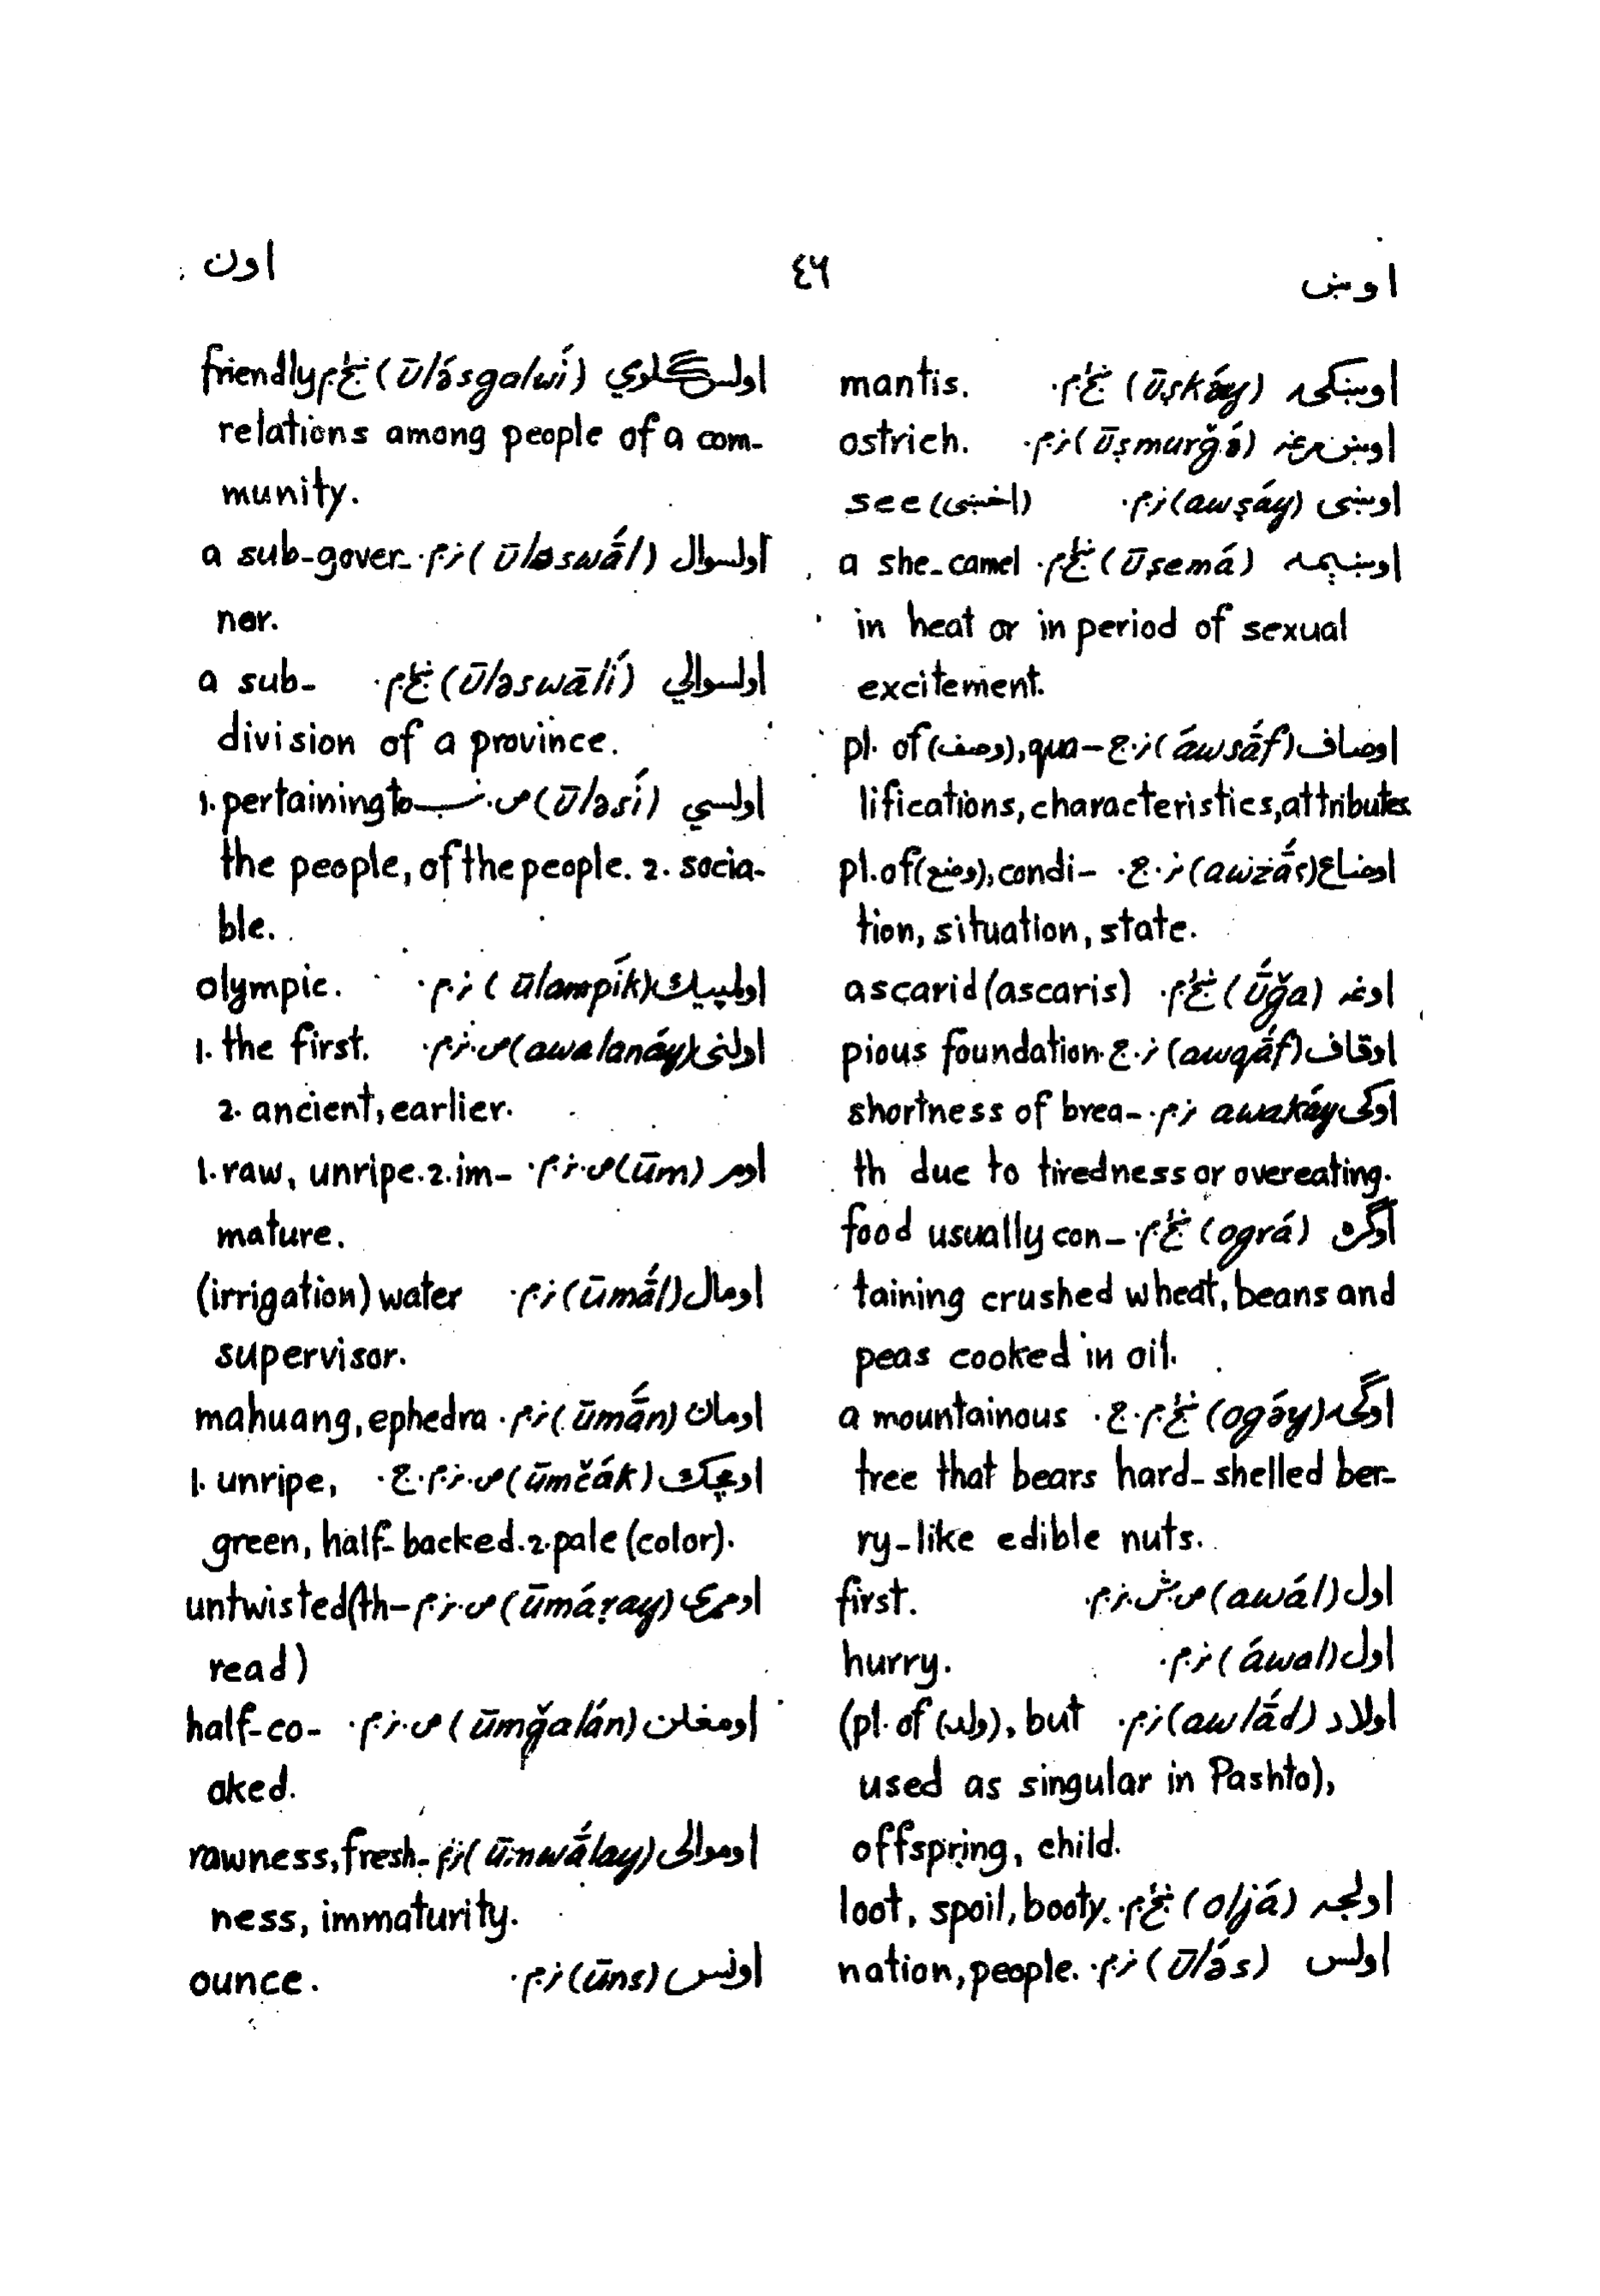 اوښ ٤٦ اون
اوښکۍ (ūṣkə́y) ښځ.م. mantis.
اوښ‌مرغه (ūṣmurğə́) نر.م. ostrich.
اوښی (awṣáy) نر.م. see (اخښی)
اوښېمه (ūṣemá) ښځ.م. a she-camel
in heat or in period of sexual
excitement.
اوصاف (áwsā́f) نر.ج. pl. of (وصف), qua-
lifications, characteristics, attributes.
اوضاع (awżā́ʕ) نر.ج. pl. of (وضع), condi-
tion, situation, state.
اوغه (ū́ğa) ښځ.م. ascarid (ascaris)
اوقاف (awqā́f) نر.ج. pious foundation.
اوکی awakáy نر.م. shortness of brea-
th due to tiredness or overeating.
اوګره (ográ) ښځ.م. food usually con-
taining crushed wheat, beans and
peas cooked in oil.
اوګۍ (ogə́y) ښځ.م.ج. a mountainous
tree that bears hard-shelled ber-
ry-like edible nuts.
اول (awál) ص.ش.نر.م. first.
اول (áwal) نر.م. hurry.
اولاد (awlā́d) نر.م. (pl. of (ولد), but
used as singular in Pashto),
offspring, child.
اولجه (oljá) ښځ.م. loot, spoil, booty.
اولس (ūlə́s) نر.م. nation, people.
اولسګلوي (ūlə́sgalwí) ښځ.م. friendly
relations among people of a com-
munity.
اولسوال (ūləswā́l) نر.م. a sub-gover-
nor.
اولسوالي (ūləswālí) ښځ.م. a sub-
division of a province.
اولسي (ūləsí) ص.نب. 1. pertaining to
the people, of the people. 2. socia-
ble.
اولمپيک (ūlampík) نر.م. olympic.
اولنی (awalanáy) ص.نر.م. 1. the first.
2. ancient, earlier.
اوم (ūm) ص.نر.م. 1. raw, unripe. 2. im-
mature.
اومال (ūmā́l) نر.م. (irrigation) water
supervisor.
اومان (ūmā́n) نر.م. mahuang, ephedra
اومچک (ūmčák) ص.نر.م.ج. 1. unripe,
green, half-backed. 2. pale (color).
اومړی (ūmáṛay) ص.نر.م. untwisted (th-
read)
اومغلن (ūmğalán) ص.نر.م. half-co-
oked.
اوموالی (ūmwā́lay) نر.م. rawness, fresh-
ness, immaturity.
اونس (ūns) نر.م. ounce.